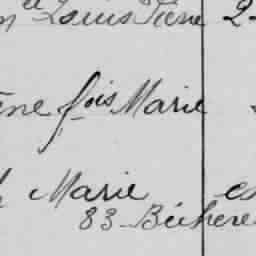 Louis Pierre 2
fois Marie
Marie es
83 Béchere